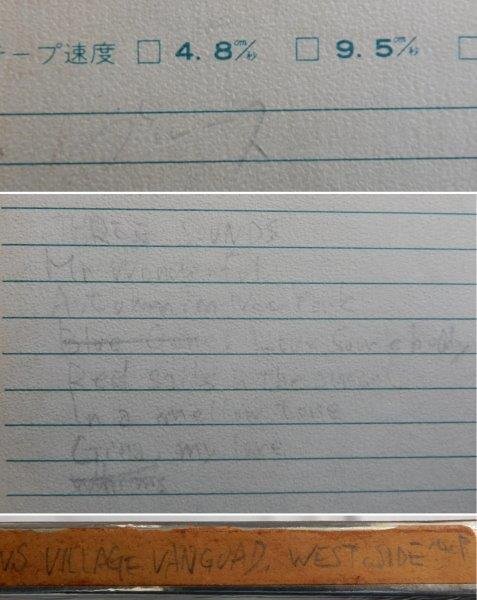 ープ速度 □ 4.8cm/秒 □ 9.5cm/秒 □
THREE SOUNDS
Mr Wonderful
Autumn in New York
Blue I Love Somebody
Red Sails in the Sunset
In a mellow Tone
my love
VILLAGE VANGUAD. WEST SIDE